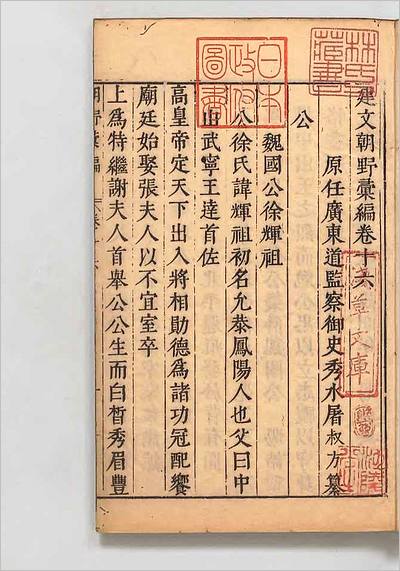 建文朝野彙編卷十六
原任廣東道監察御史秀水屠叔方纂
公
魏國公徐輝祖
公徐氏諱輝祖初名允恭鳳陽人也父曰中
山武寧王達首佐
高皇帝定天下出入將相勛德爲諸功冠配饗
廟廷始娶張夫人以不宜室卒
上爲特繼謝夫人首舉公公生而白晳秀眉豐
林氏
藏書
日本
政府
圖書
文庫